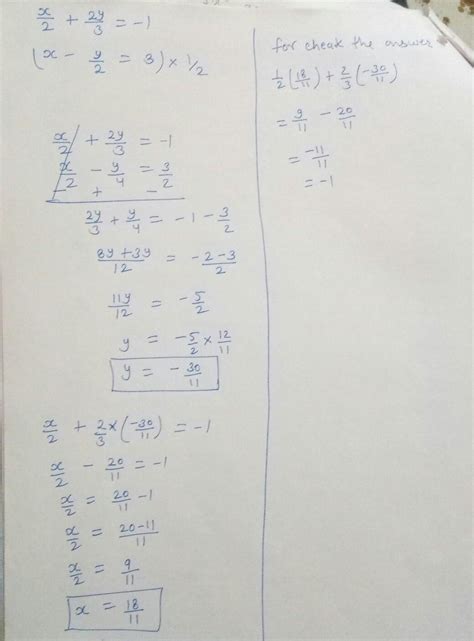 x/2 + 2y/3 = -1
(x - y/2 = 3) × 1/2
x/2 + 2y/3 = -1
x/2 - y/4 = 3/2
- + -
2y/3 + y/4 = -1 - 3/2
8y+3y/12 = -2-3/2
11y/12 = -5/2
y = -5/2 × 12/11
y = -30/11
x/2 + 2/3 × (-30/11) = -1
x/2 - 20/11 = -1
x/2 = 20/11 - 1
x/2 = 20-11/11
x/2 = 9/11
x = 18/11
for cheak the answer
1/2(18/11) + 2/3(-30/11)
= 9/11 - 20/11
= -11/11
= -1